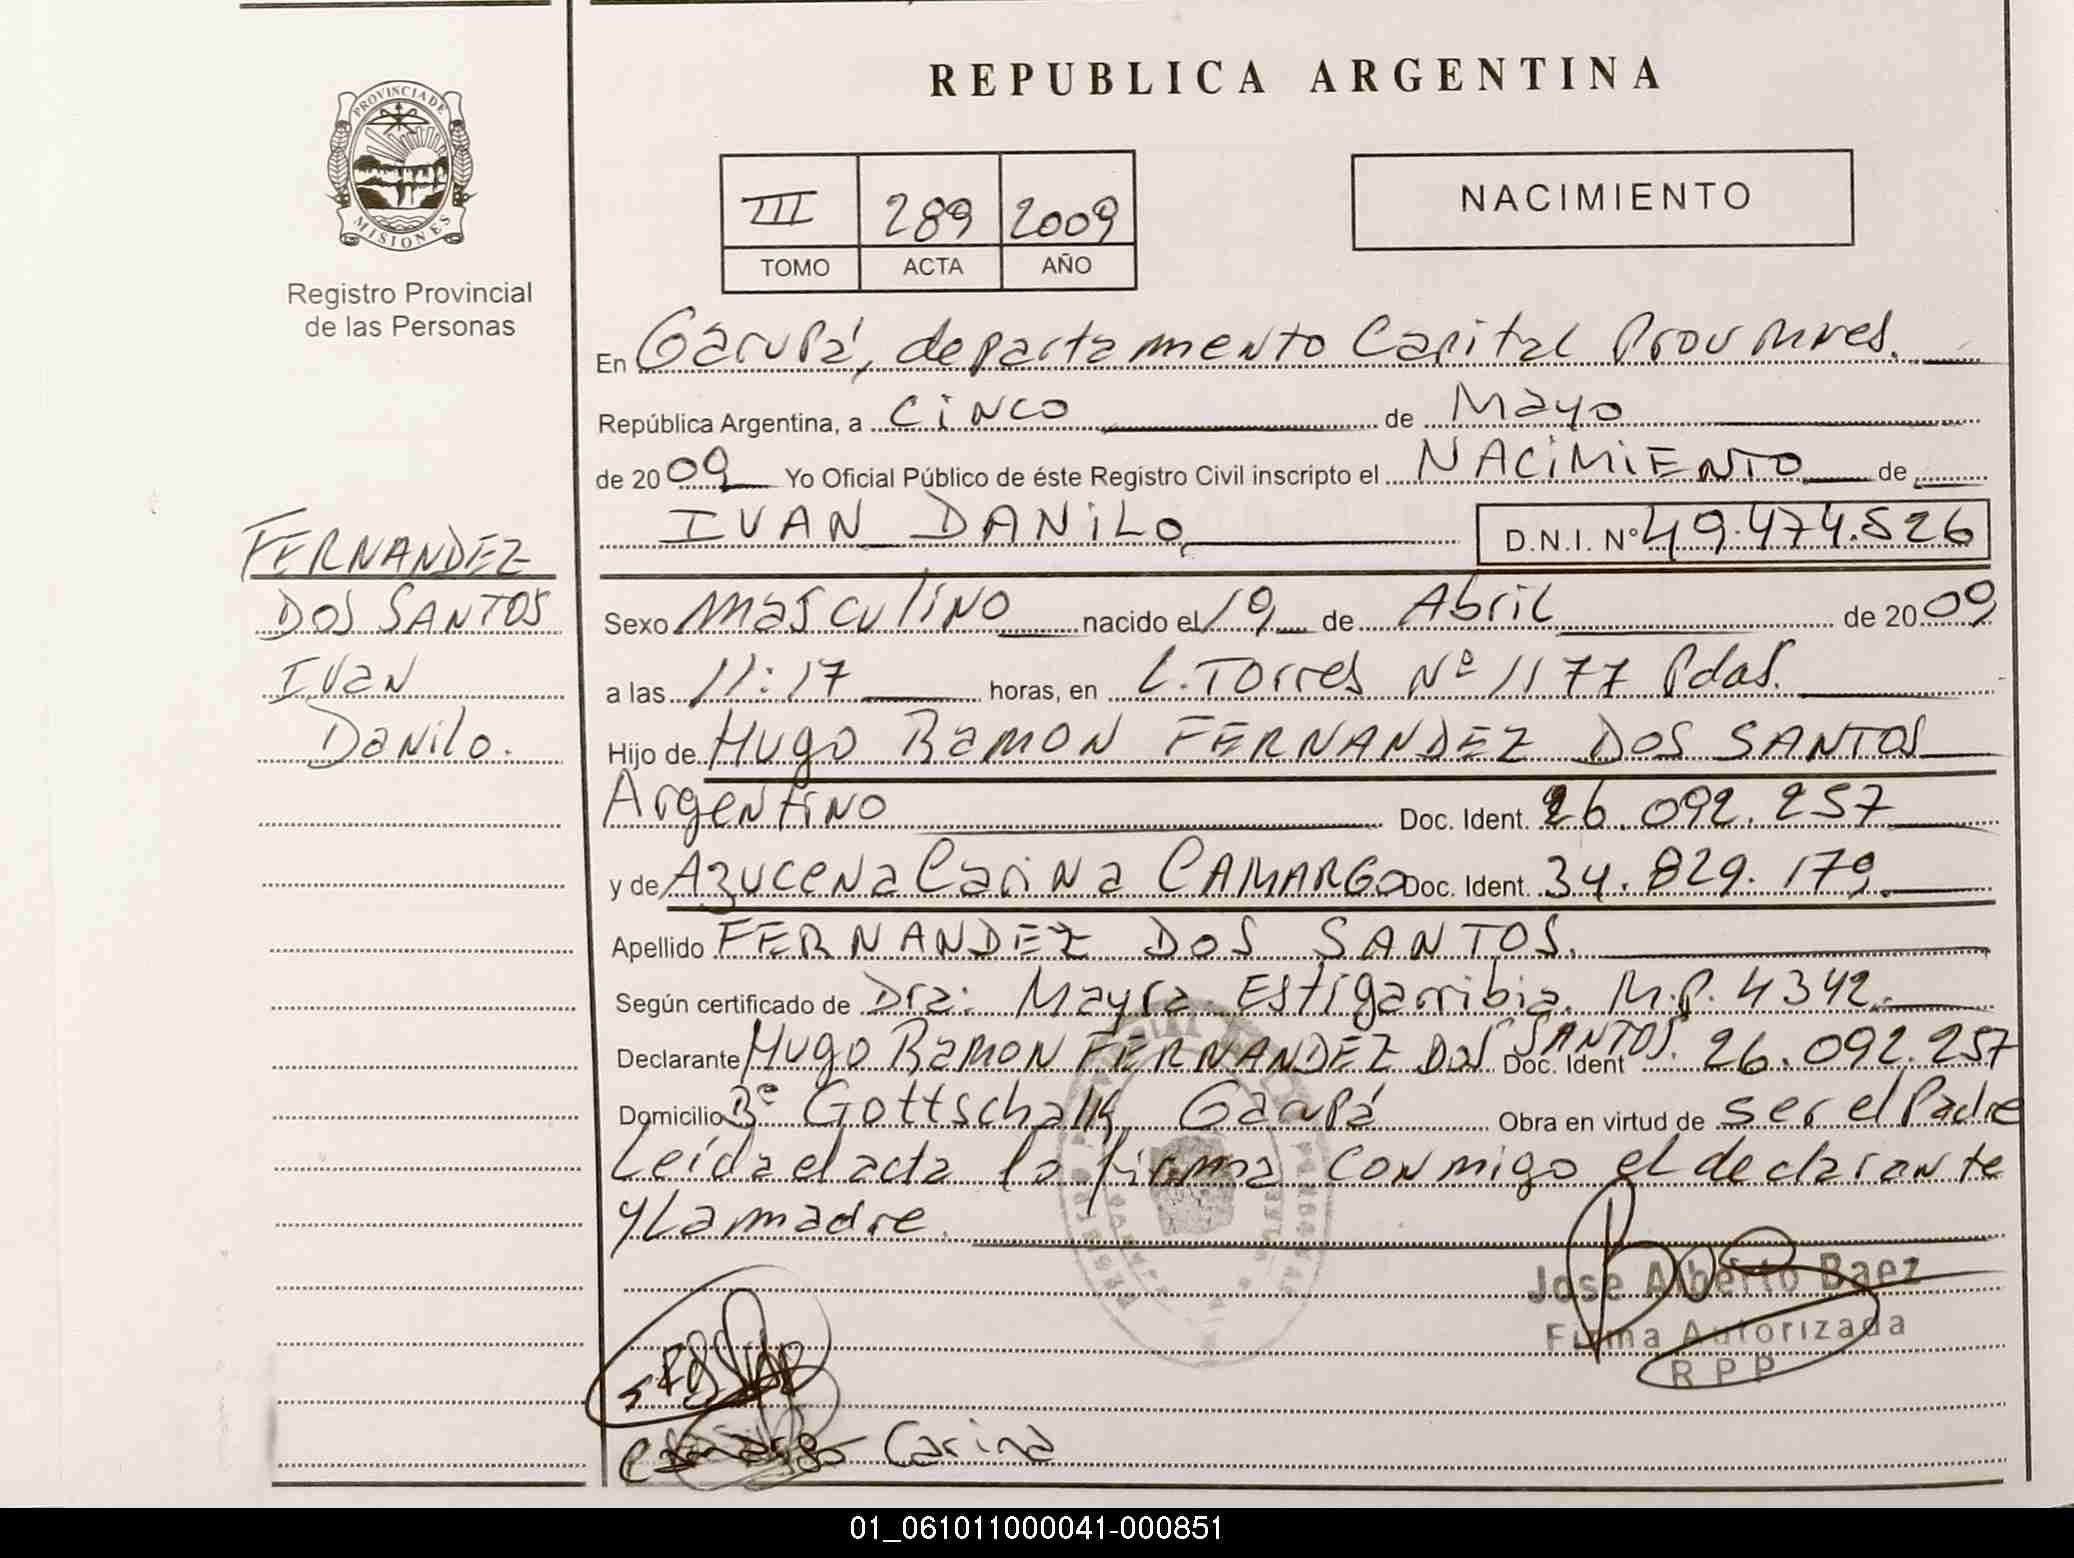 REPUBLICA ARGENTINA
PROVINCIA DE
MISIONES
Registro Provincial
de las Personas
III 289 2009
TOMO ACTA AÑO
NACIMIENTO
En Garupá, departamento Capital Prov Mnes.
República Argentina, a cinco de Mayo
de 2009 Yo Oficial Público de éste Registro Civil inscripto el NACIMIENTO de
IVAN DANILO D.N.I. Nº 49.474.526
FERNANDEZ
DOS SANTOS
Ivan
Danilo.
Sexo masculino nacido el 19 de Abril de 2009
a las 11:17 horas, en L. Torres Nº 1177 Pdas.
Hijo de Hugo Ramon FERNANDEZ DOS SANTOS
Argentino Doc. Ident. 26.092.257
y de Azucena Carina CAMARGO Doc. Ident. 34.829.179
Apellido FERNANDEZ DOS SANTOS.
Según certificado de Dra: Mayra Estigarribia. M.P. 4342.
Declarante Hugo Ramon FERNANDEZ DOS SANTOS. Doc. Ident 26.092.257
Domicilio Bº Gottschalk Garupá Obra en virtud de ser el Padre
Leída el acta la firma conmigo el declarante
y la madre.
Jose Alberto Baez
Firma Autorizada
R P P
Camargo Carina
01_061011000041-000851